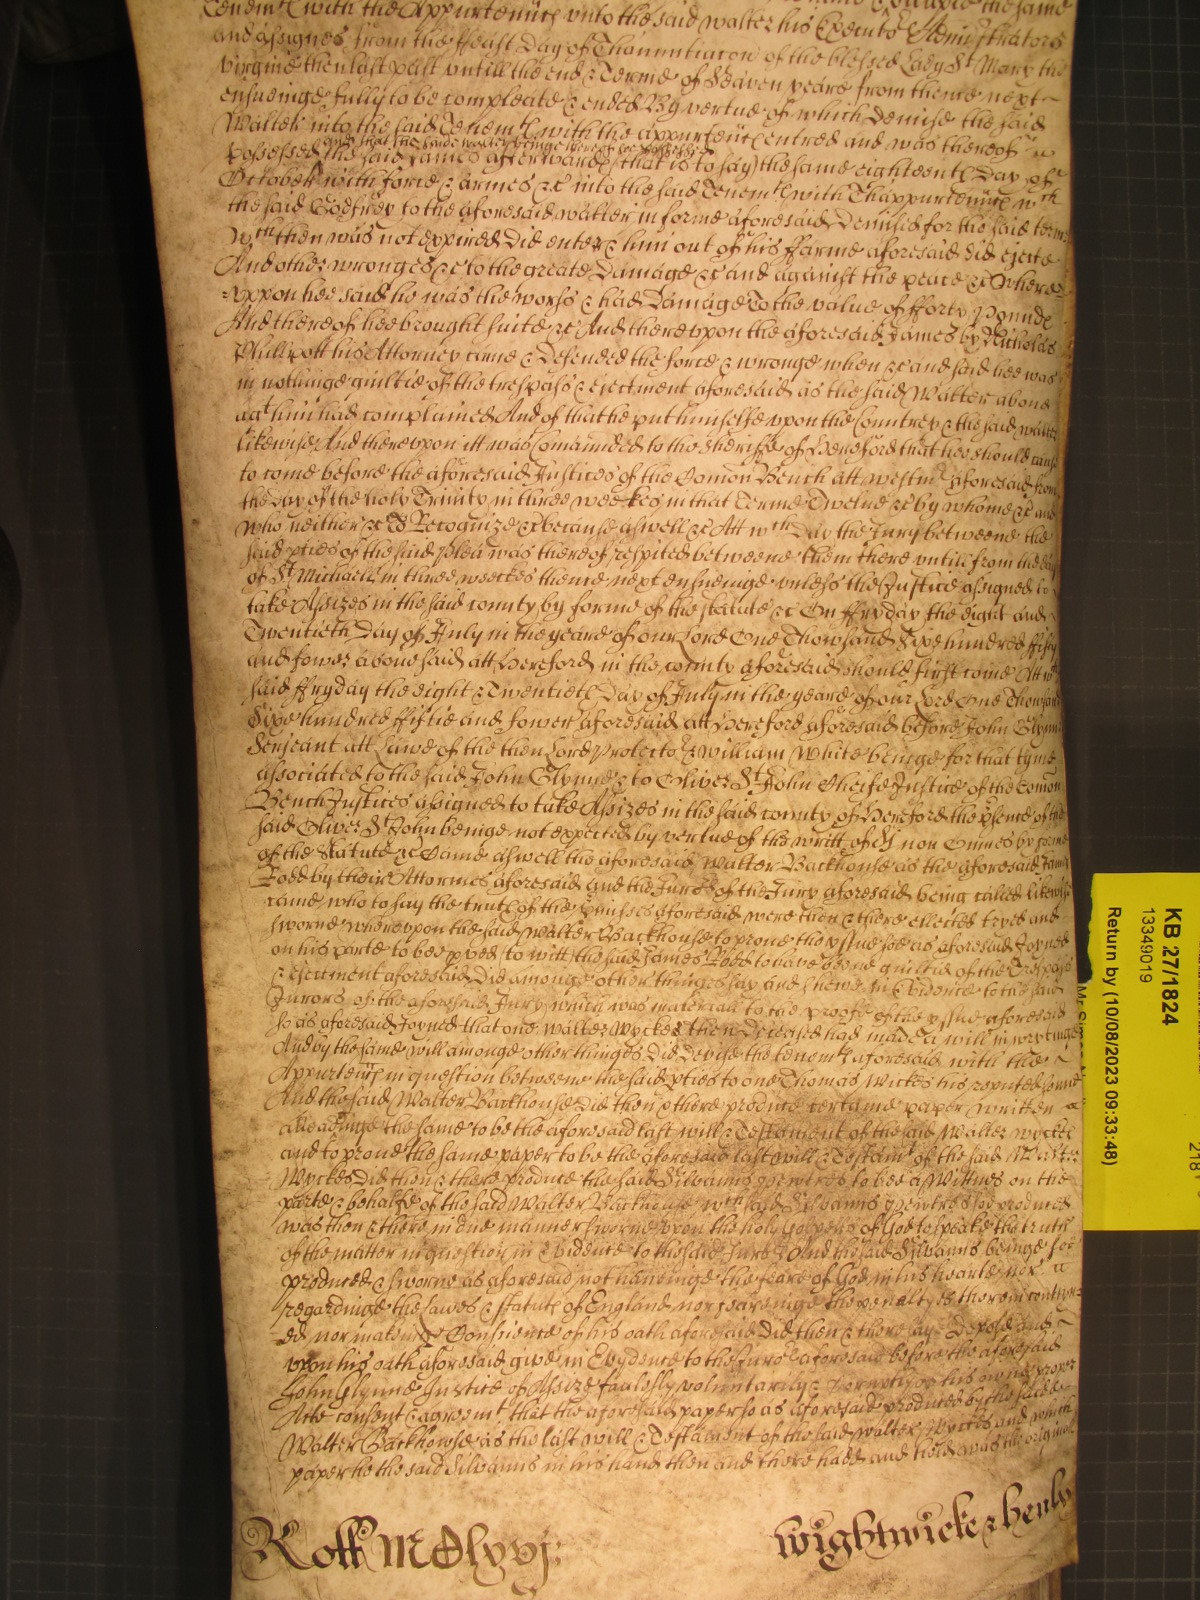 Tenemt with the Appurtennces unto the said Walter his Executors Administrators
and assignes from the ffeast Day of Thannuntiacon of the blessed Lady St Mary the
virgine then last past untill the end & Terme of Seaven yeares from thence next
ensueinge fully to be compleate & ended By vertue of which demise the said
Walter into the said Tenemt with the appurtennces entred and was thereof
and that the saide walter beinge thereof soe possessed
possessed the said James afterwards (that is to say) the same eighteenth Day of
October with force & armes &c into the said Tenemt with Thappurtennces wch
the said Godfrey to the aforesaid walter in forme aforesaid Demised for the said terme
wch then was not expired Did enter & him out of his ffarme aforesaid did eiecte
And other wronges &c to the greate Damage &c and against the peace &c Where
=uppon hee said he was the worss & had Damage To the value of fforty Pounds
And thereof hee brought suite &c And thereuppon the aforesaid James by Nicholas
Phillpott his Attorney came & Defended the force & wronge when &c and said hee was
in nothinge guiltie of the trespass & eiectment aforesaid as the said Walter above
agt him had complained And of that he put himselfe uppon the Countrey & the said walter
likewise And thereuppon itt was Comaunded to the Sheriffe of Hereford that hee should cause
to come before the aforesaid Justices of the Comon Bench att westmr aforesaid from
the day of the holy Trinity in three weekes in that Terme Twelve &c by whome &c and
who neither &c To Recognize &c because aswell &c Att wch Day the Jury betweene the
said pties of the said plea was thereof respited betweene them there untill from the day
of St Michaell in three weeckes thence next ensueinge unless the Justice assigned to
take Assizes in the said county by forme of the statute &c On ffryday the eight and
Twentieth Day of July in the yeare of our Lord One Thowsand Sixe hundred fifty
and fower abovesaid att Hereford in the county aforesaid should first come Att wch
said ffryday the eight & Twentieth Day of July in the yeare of our Lord One Thowsand
Sixe hundred ffiftie and fower aforesaid att Hereford aforesaid before John Glynne
Serjeant att Lawe of the then Lord Protector & William White beinge for that tyme
associated to the said John Glynne & to Oliver St John Cheife Justice of the Comon
Bench Justices assigned to take Assizes in the said county of Hereford the psence of the
said Oliver St John beinge not expected by vertue of the writt of Si non Omnes by forme
of the statute &c Came aswell the aforesaid Walter Backhouse as the aforesaid James
Rodd by their Attornies aforesaid and the Jurors of the Jury aforesaid being called likewise
came who to say the truth of the pmisses aforesaid were then & there ellected tryed and
sworne whereuppon the said Walter Backhouse to prove the yssue soe as aforesaid Joyned
on his parte to bee pved to witt the said James Rodd to have beene guiltie of the Trespass
& eiectment aforesaid Did amonge other thinges say and shewe in Evidence to the said
Jurors of the aforesaid Jury which was materiall to the proofe of the yssue aforesaid
so as aforesaid Joyned that one Walter Wyckes then Deceased had made a will in wrytinge
And by the same will amonge other thinges Did Devise the tenemt aforesaid with the
Appurtennces in question betweene the said pties to one Thomas Wickes his reputed sonne
And the said Walter Backhouse Did then & there produce certaine paper written
alleadginge the same to be the aforesaid last will & Testament of the said Walter Wyckes
and to prove the same paper to be the aforesaid last will & Testamt of the said Walter
Wyckes Did then & there produce the said Silvanus to bee a Wittnes on the
parte & behalfe of the said Walter Backhouse wch said Silvanus soe produced
was then & there in due manner sworne uppon the holy Gospells of God to speake the truth
of the matter in question in Evidence to the said Jurors And the said Silvanus beinge soe
produced & sworne as aforesaid not haveinge the feare of God in his hearte nor
regardinge the lawes & statuts of England nor feareinge the penaltyes therein conteyn=
ed nor makinge Conscience of his oath aforesaid Did then & there say Depose and
uppon his oath aforesaid give in Evydence to the Jurors aforesaid before the aforesaid
John Glynne Justice of Assize falslly voluntarily & corruptly of his owne proper
Acte consent & agreemt that the aforesaid paper so as aforesaid produced by the saide
Walter Backhowse as the last will & Testament of the said walter Wyckes and which
paper he the said Silvanus in his hand then and there hadd and held was the originall
Rott MDlxvj:
Wightwicke & henly
KB 27/1824
13349019
Return by (10/08/2023 09:33:48)